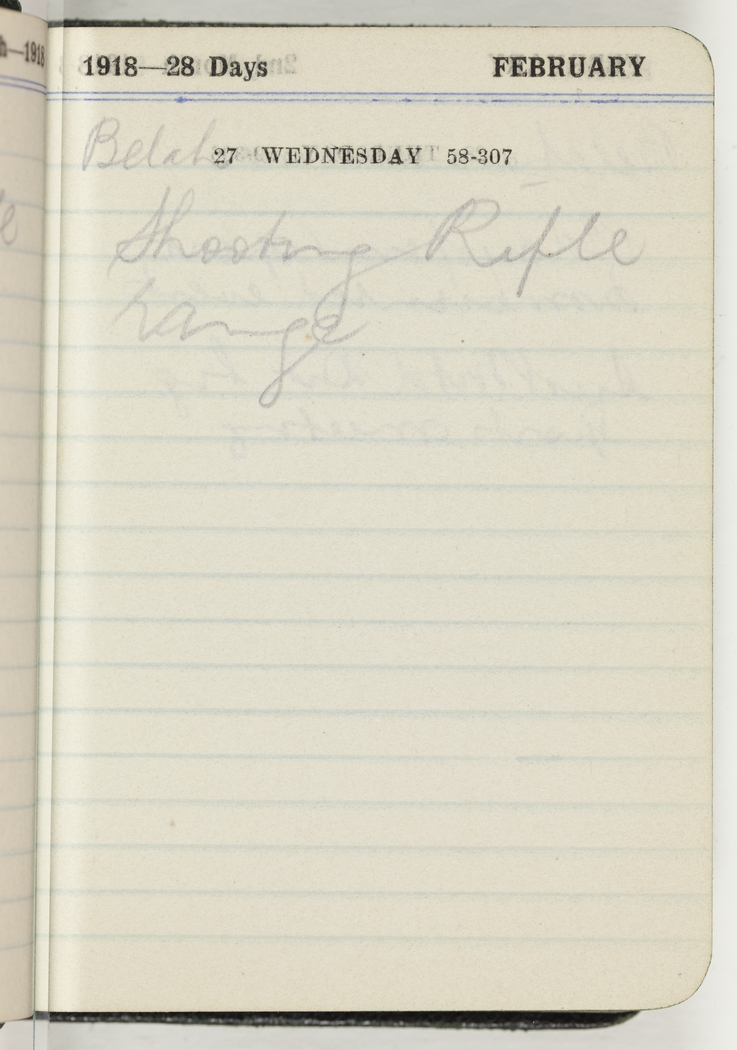 1918—28 Days FEBRUARY
Belah 27 WEDNESDAY 58-307
Shooting Rifle
range